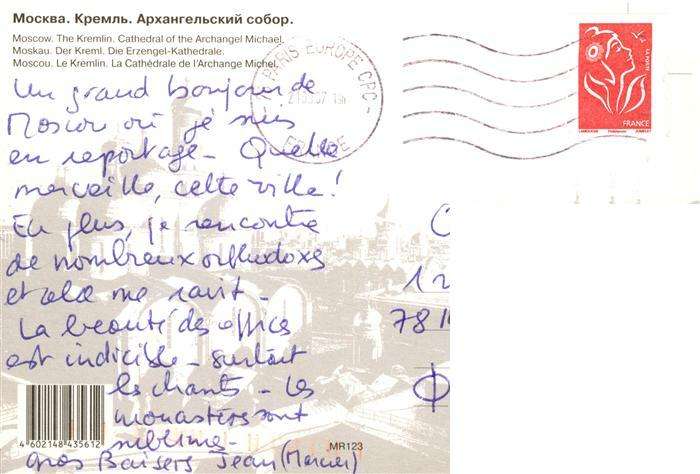 Москва. Кремль. Архангельский собор.
Moscow. The Kremlin. Cathedral of the Archangel Michael.
Moskau. Der Kreml. Die Erzengel-Kathedrale.
Moscou. Le Kremlin. La Cathédrale de l'Archange Michel.
Un grand bonjour de
Moscou où je suis
en reportage - Quelle
merveille, cette ville!
En plus, je rencontre
de nombreux orthodoxes
et cela me ravit -
La beauté des offices
est indicible - surtout
les chants - Les
monastères sont
sublimes -
Gros Baisers Jean (Mercier)
4 602148 435612
MR123
PARIS EUROPE CPC
FRANCE
LA POSTE
FRANCE
C
12
78 1